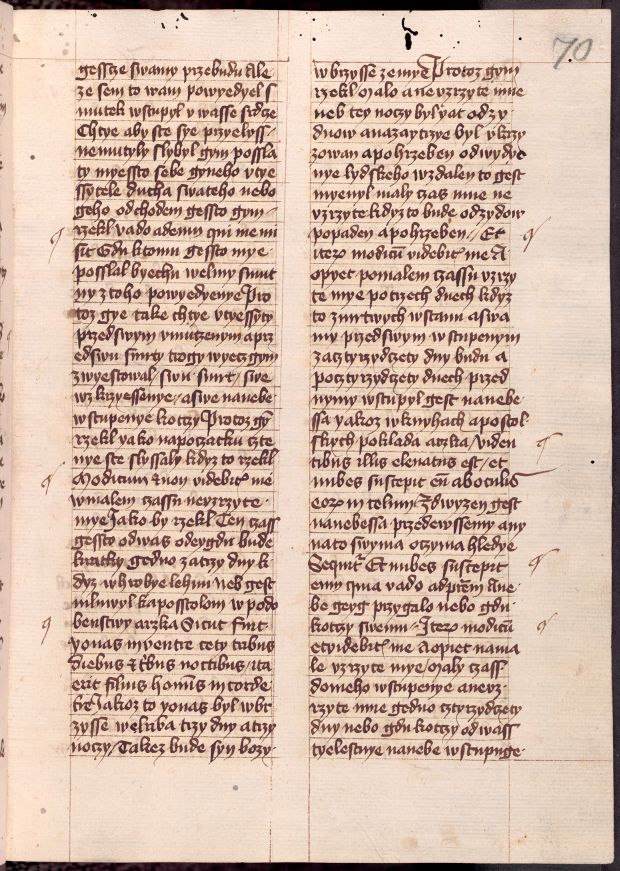 70
gessze swamy przebudu Ale
ze sem to wam powyedyel s
mutek wstupyl v wasse srdcze
Chtye aby ste sye przyelyss
nemutyly slybyl gym possla
ty myesto sebe gyneho vtye
ssytele ducha swateho nebo
geho odchodem gessto gym
rzekl vado ad eum qui me mi
sit Gdu ktomu gessto mye
posslal byechu welmy smut
ny ztoho powyedyenye Pro
toz gye take chtye vtyessyty
przedswym vmuczenym a prz
edswu smrty trogy wyecz gym
zwyestowal swu smrt swe
wzkrzyessenye a swe nanebe
wstupenye koczy Protoz gym
rzekl yako napoczatku czte
nye ste slyssaly kdyz to rzekl
Modicum et non videbitis me
wmalem czassu neuzrzyte
mye Jako by rzekl Ten czass
gessto odwas odeygdu bude
kratky gedno zatrzy dny k
dyz whrobye lehnu neb gest
mluwyl kapostolom w podo
benstwy arzka Sicut fuit
yonas in ventre ceti tribus
diebus et tribus noctibus ita
erit filius hominis in corde
terre Jakoz to yonas byl wbr
zysse welriba trzy dny a trzy
noczy Takez bude syn bozy
wbrzysse zemye Protoz gym
rzekl Malo a neuzrzyte mne
neb tey noczy byl yat odzy
duow a nazaytrzye byl vkrzy
zowan a pohrzeben odwydye
nye lydskeho wzdalen to gest
myenyl maly czas mne ne
vzrzyte kdyz to bude odzyduow
popaden a pohrzeben Et
iterum modicum videbitis me A
opyet pomalem czassu vzrzy
te mye po trzech dnech kdyz
to zmrtwych wstanu a swa
my przedswym wstupenym
za cztyrzydczety dny budu A
po cztyrzydczety dnech przed
nymy wstupyl gest nanebe
ssa yakoz wknyhach apostol
skych poklada arzka Viden
tibus illis eleuatus est et
nubes suscepit eum ab oculis
eorum in celum Zdwyzen gest
nanebessa przedewssemy any
nato swyma oczyma hledye
Sequitur Et nubes suscepit
eum quia vado ad patrem A ne
be geyg przygalo nebo gdu
koczy swemu Iterum modicum
et videbitis me A opiet nama
le vzrzyte mye Maly czass
domeho wstupenye a neuz
rzyte mne gedno cztyrzydczety
dny nebo gdu koczy odwass
tyelestnye nanebe wstupuge